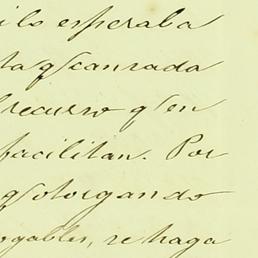 ilo esperaba
ta q. cansada
recurso q. en
facilitan. Por
q. otorgando
ogables, se haga